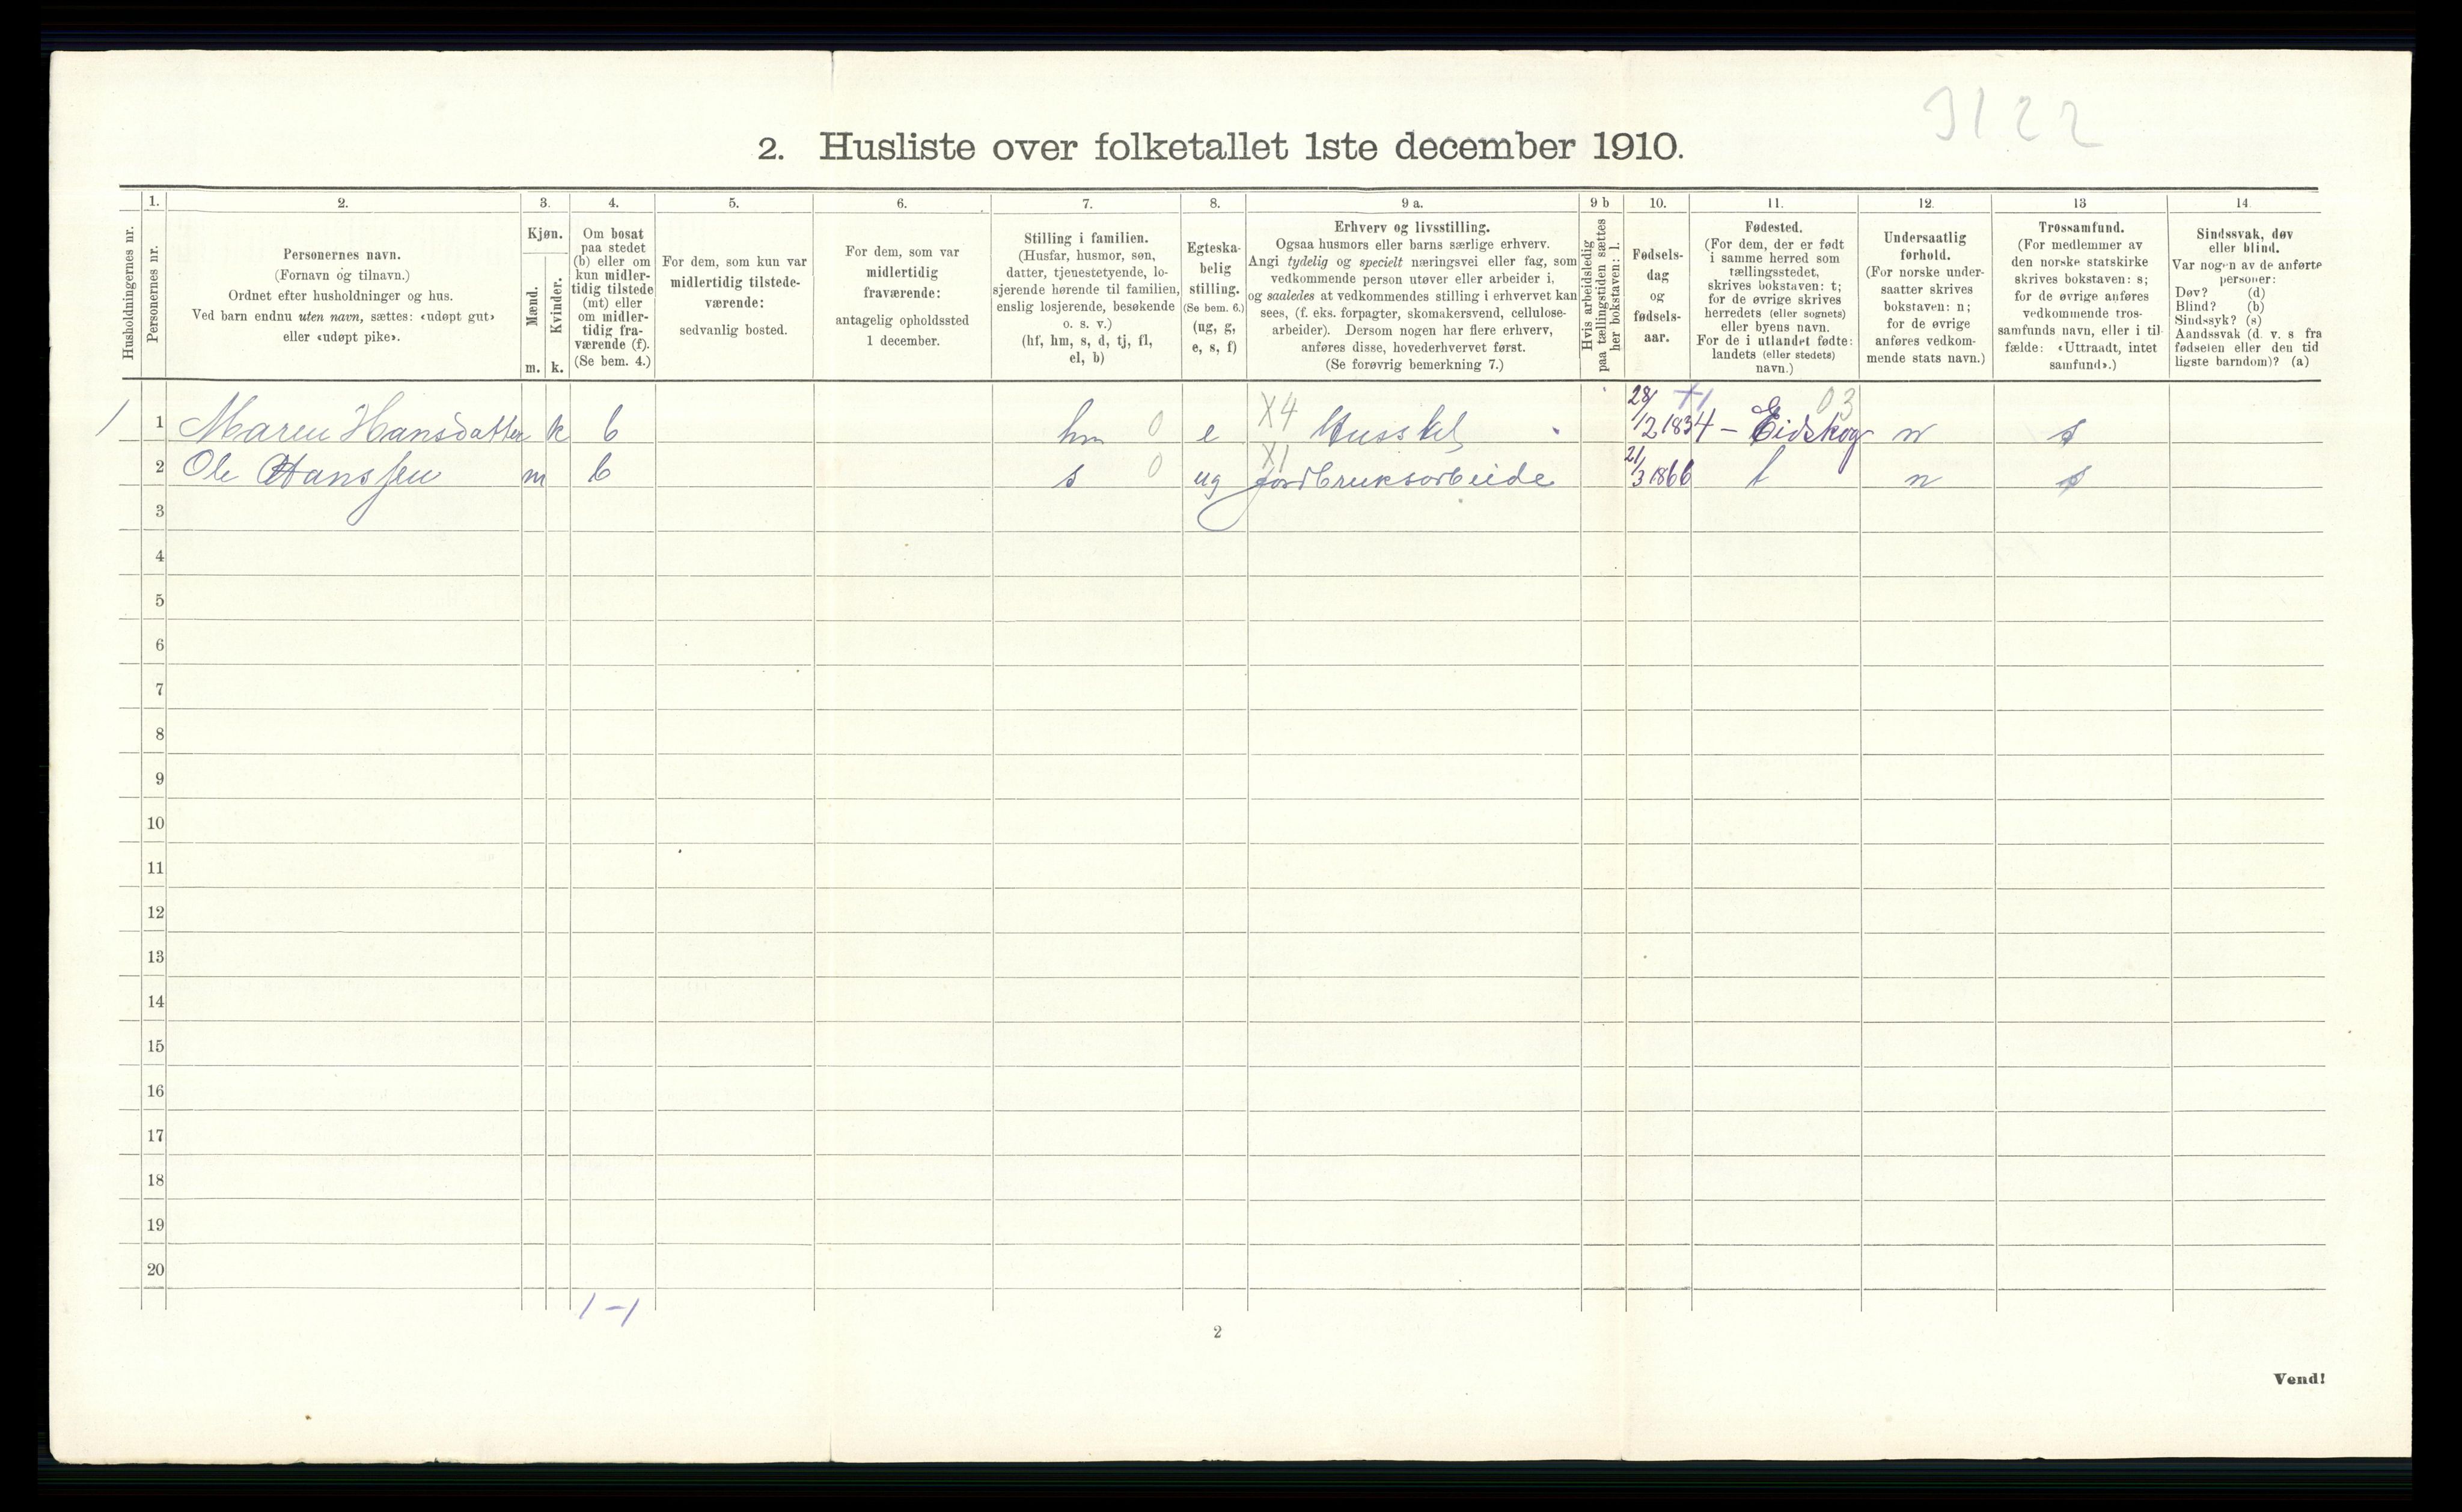 3122
2. Husliste over folketallet 1ste december 1910.
Husholdningernes nr.
1.
Personernes nr.
2.
Personernes navn.
(Fornavn og tilnavn.)
Ordnet efter husholdninger og hus.
Ved barn endnu uten navn, sættes: «udøpt gut»
eller «udøpt pike».
3.
Kjøn.
Mænd.
Kvinder.
m. k.
4.
Om bosat
paa stedet
(b) eller om
kun midler-
tidig tilstede
(mt) eller
om midler-
tidig fra-
værende (f).
(Se bem. 4.)
5.
For dem, som kun var
midlertidig tilstede-
værende:
sedvanlig bosted.
6.
For dem, som var
midlertidig
fraværende:
antagelig opholdssted
1 december.
7.
Stilling i familien.
(Husfar, husmor, søn,
datter, tjenestetyende, lo-
sjerende hørende til familien,
enslig losjerende, besøkende
o. s. v.)
(hf, hm, s, d, tj, fl,
el, b)
8.
Egteska-
belig
stilling.
(Se bem. 6.)
(ug, g,
e, s, f)
9 a.
Erhverv og livsstilling.
Ogsaa husmors eller barns særlige erhverv.
Angi tydelig og specielt næringsvei eller fag, som
vedkommende person utøver eller arbeider i,
og saaledes at vedkommendes stilling i erhvervet kan
sees, (f. eks. forpagter, skomakersvend, cellulose-
arbeider). Dersom nogen har flere erhverv,
anføres disse, hovederhvervet først.
(Se forøvrig bemerkning 7.)
9 b
Hvis arbeidsledig
paa tællingstiden sættes
her bokstaven: l.
10.
Fødsels-
dag
og
fødsels-
aar.
11.
Fødested.
(For dem, der er født
i samme herred som
tællingsstedet,
skrives bokstaven: t;
for de øvrige skrives
herredets (eller sognets)
eller byens navn.
For de i utlandet fødte:
landets (eller stedets)
navn.)
12.
Undersaatlig
forhold.
(For norske under-
saatter skrives
bokstaven: n;
for de øvrige
anføres vedkom-
mende stats navn.)
13
Trossamfund.
(For medlemmer av
den norske statskirke
skrives bokstaven: s;
for de øvrige anføres
vedkommende tros-
samfunds navn, eller i til-
fælde: «Uttraadt, intet
samfund».)
14
Sindssvak, døv
eller blind.
Var nogen av de anførte
personer:
Døv? (d)
Blind? (b)
Sindssyk? (s)
Aandssvak (d. v. s fra
fødselen eller den tid
ligste barndom)? (a)
1 1 Maren Hansdatter k b hm 0 e X4 Husstel 28/12 1834 - Eidskog 03 n s
2 Ole Hanssen m b s 0 ug X1 jordbruksarbeide 21/3 1866 t n s
3
4
5
6
7
8
9
10
11
12
13
14
15
16
17
18
19
20
1 - 1
2
Vend!